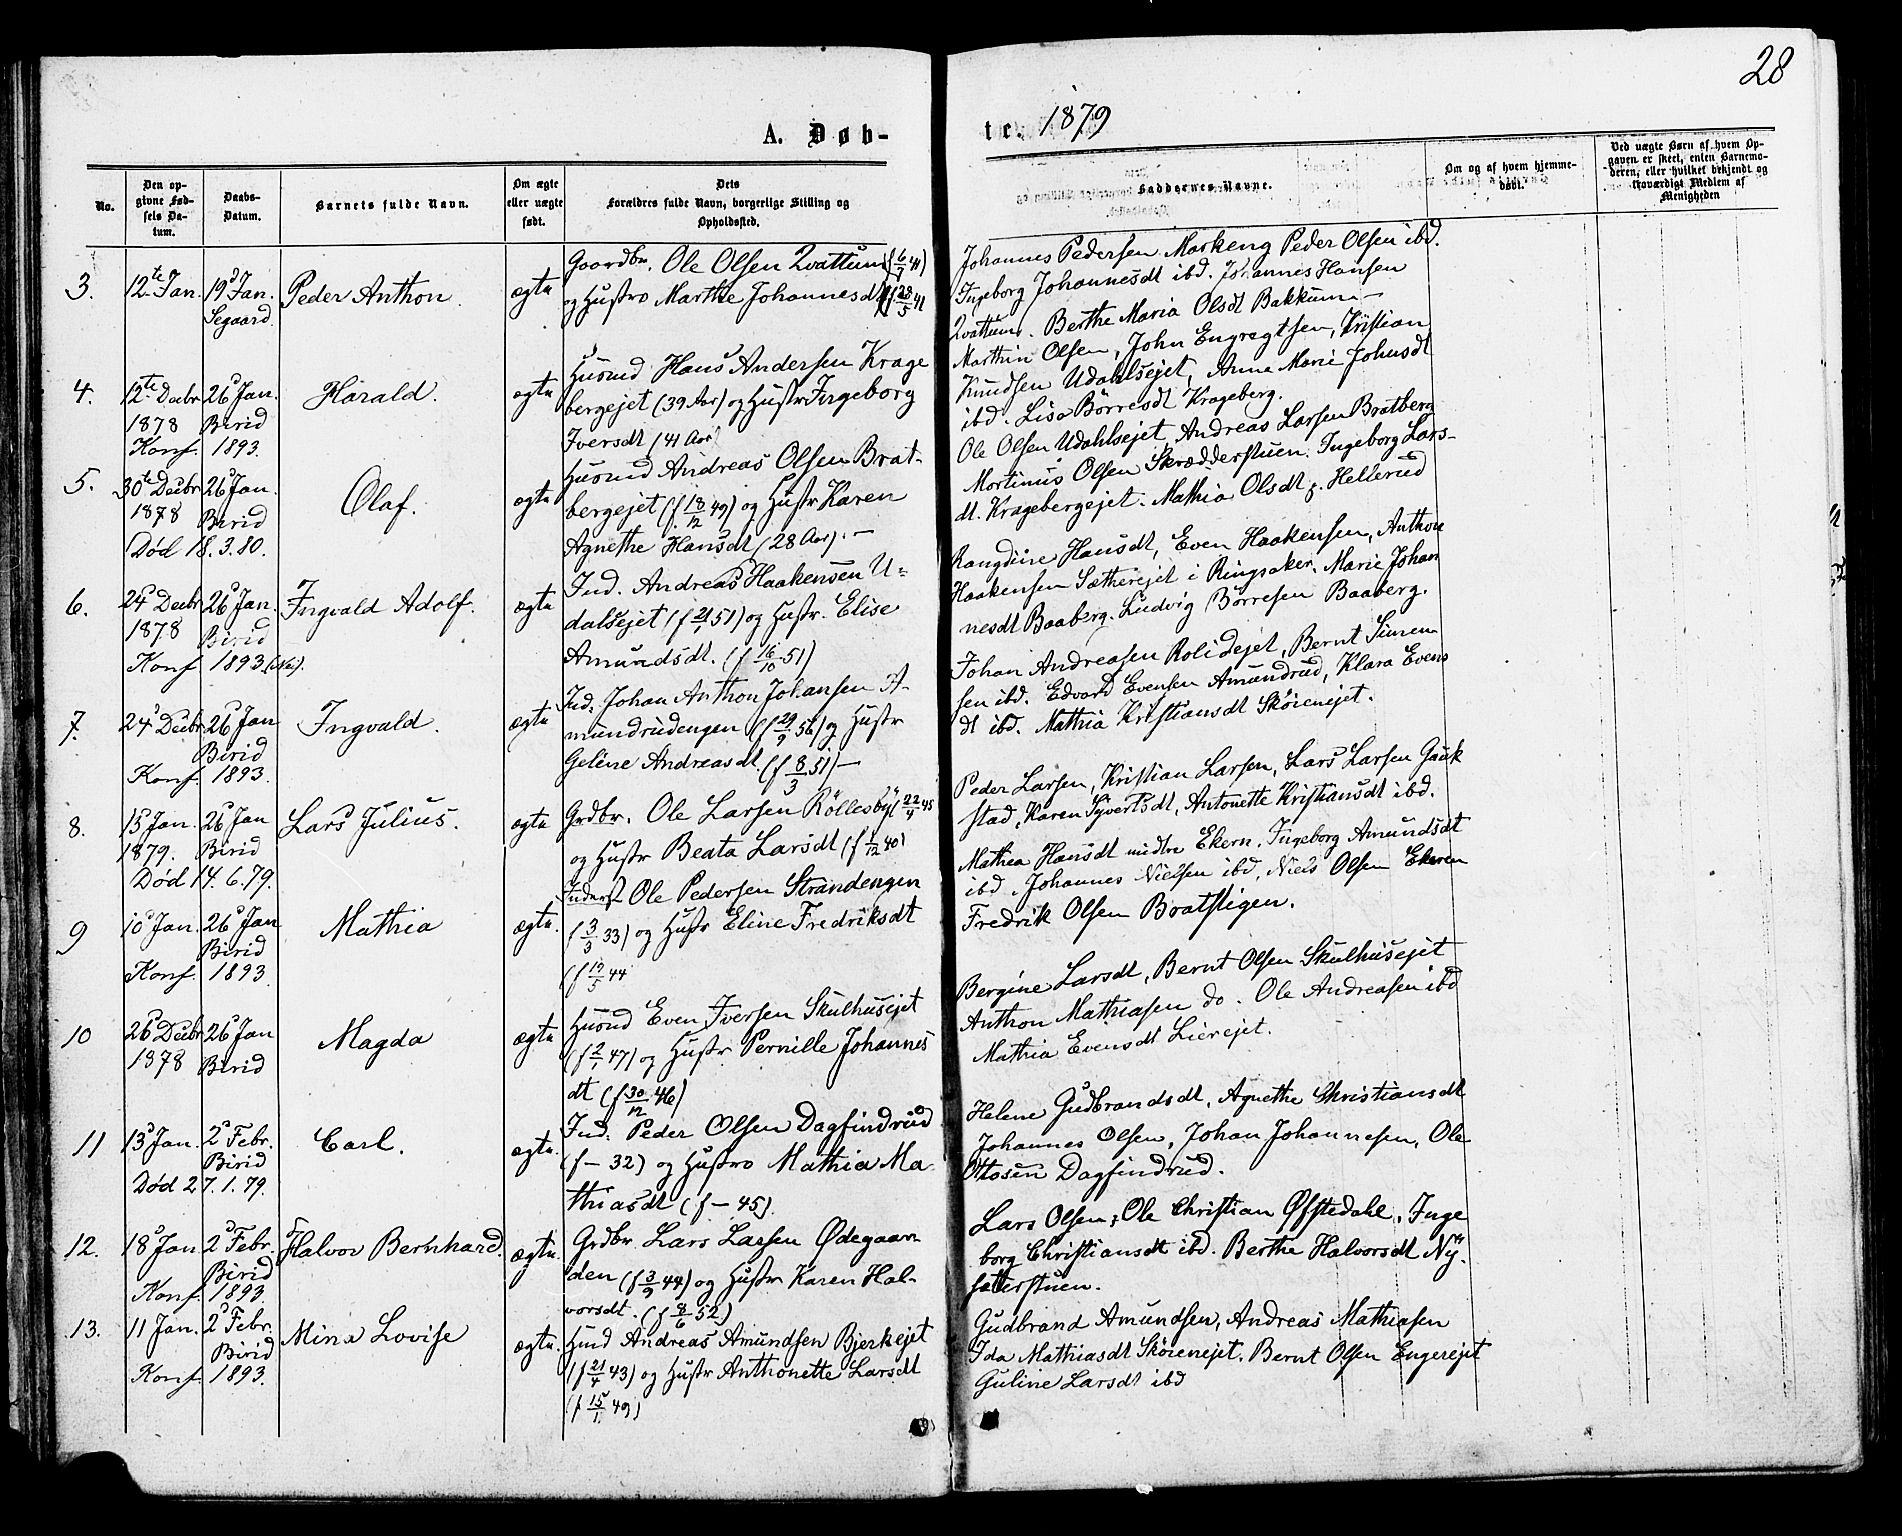 28
A. Døb-
te. 1879
No.
Den op-
givne Fød-
sels Da-
tum.
Daabs-
Datum.
Barnets fulde Navn.
Om ægte
eller uægte
født.
Dets
Forældres fulde Navn, borgerlige Stilling og
Opholdssted.
Faddernes Navne.
Om og af hvem hjemme-
døbt.
Ved uægte Børn af hvem Op-
gaven er skeet, enten Barnemo-
deren, eller hvilket bekjendt og
troværdigt Medlem af
Menigheden
3.
12te Jan.
19d Jan.
Segaard
Peder Anthon.
ægte
Gaardbr. Ole Olsen Qvattum (f 6/7 41)
og Hustro Marthe Johannesdt (f 28/5 41
Johannes Pedersen Markeng Peder Olsen ibd.
Ingeborg Johannesdt ibd. Johannes Hansen
Qvattum. Berthe Maria Olsdt Bakkum —
4.
12te Decbr
1878
26d Jan.
Birid
Konf. 1893.
Harald.
ægte
Husmd Hans Andersen Krage
bergejet (39 Aar) og Hustr Ingeborg
Iversdt (41 Aar)
Marthin Olsen, John Engregtsen, Kristian
Knudsen Udahlsejet, Anne Marie Johnsdt
ibd. Lisa Børresdt Krageberg.
5.
30te Decbr
1878
26d Jan.
Birid
Død 18.3.80.
Olaf.
ægte
Husmd Andreas Olsen Brat-
bergejet (f. 18/12 49) og Hustr Karen
Agnethe Hansdt (28 Aar). —
Ole Olsen Udahlsejet, Andreas Larsen Bratberg
Mortinus Olsen Skrædderstuen. Ingeborg Lars-
dt. Kragebergejet. Mathia Olsdt Hellerud
6.
25d Decbr
1878
26d Jan.
Birid
Konf. 1893.
Ingvald Adolf.
ægte
Ind. Andreas Haakensen U-
dalsejet (f 21/1 51) og Hustr. Elise
Amundsdt. (f 16/10 51)
Rangdine Hansdt, Even Haakensen, Anthon
Haakensen Sætherejet i Ringsaker. Marie Johan
nesdt Baaberg. Ludvig Børresen Baaberg.
7.
24d Decbr
26d Jan
Birid
Konf. 1893.
Ingvald.
ægte
Ind. Johan Anthon Johansen A-
mundrudengen (f 29/9 56) og Hustr
Geline Andreasdt. (f 8/3 51) —
Johan Andreasen Rolidejet, Bernt Simen
sen ibd. Edvard Evensen Amundrud, Klara Evens
dt ibd. Mathia Kristiansdt Skøienejet.
8.
15d Jan.
1879.
26d Jan
Birid
Død 14.6.79.
Lars Julius.
ægte
Grdbr. Ole Larsen Røllesby (f 22/4 45
og Hustr Beata Larsdt (f 1/12 40)
Peder Larsen, Kristian Larsen, Lars Larsen Gauk
stad, Karen Syvertsdt, Antonette Kristiansdt ibd.
9
10d Jan.
26d Jan
Birid
Konf. 1893.
Mathia
ægte.
Inderst Ole Pedersen Strandengen
(f 3/3 33) og Hustr Eline Fredriksdt
(f 19/5 44
Mathea Hansdt midtre Ekern. Ingeborg Amundsdt
ibd. Johannes Nielsen ibd, Niels Olsen Ekeren
Fredrik Olsen Bratstigen.
10
26d Decbr
1878
26d Jan
Birid
Magda
ægte
Husmd Even Iversen Skulhusejet
(f 2/1 47) og Hustr Pernille Johannes
dt (f 30/12 46)
Bergine Larsdt, Bernt Olsen Skulhusejet
Anthon Mathiasen do. Ole Andreasen ibd
Mathia Evensdt Lierejet.
11
13d Jan.
2d Febr.
Birid
Død 27.1.79.
Carl.
ægte.
Ind. Peder Olsen Dagfindrud
(f — 32) og Hustro Mathia Ma-
thiasdt (f — 45).
Helene Gudbrandsdt, Agnethe Christiansdt
Johannes Olsen, Johan Johannesen, Ole
Ottosen Dagfindrud.
12.
18d Jan
2d Febr.
Birid
Konf. 1893.
Halvor Bernhard.
ægte.
Grdbr Lars Larsen Ødegaar-
den (f 3/9 44) og Hustr Karen Hal-
vorsdt. (f 8/6 52)
Lars Olsen, Ole Christian Øfstedahl, Inge
borg Christiansdt ibd. Berthe Halvorsdt Ny-
sæterstuen.
13.
11 Jan.
2d Febr.
Birid
Konf. 1893.
Mina Lovise
ægte.
Hmd Andreas Amundsen Bjerkejet
(f 21/4 43) og Hustr Anthonette Larsdt
(f 15/1 49)
Gudbrand Amundsen, Andreas Mathiasen
Ida Mathiasdt Skøienejet. Bernt Olsen Engerejet
Guline Larsdt ibd